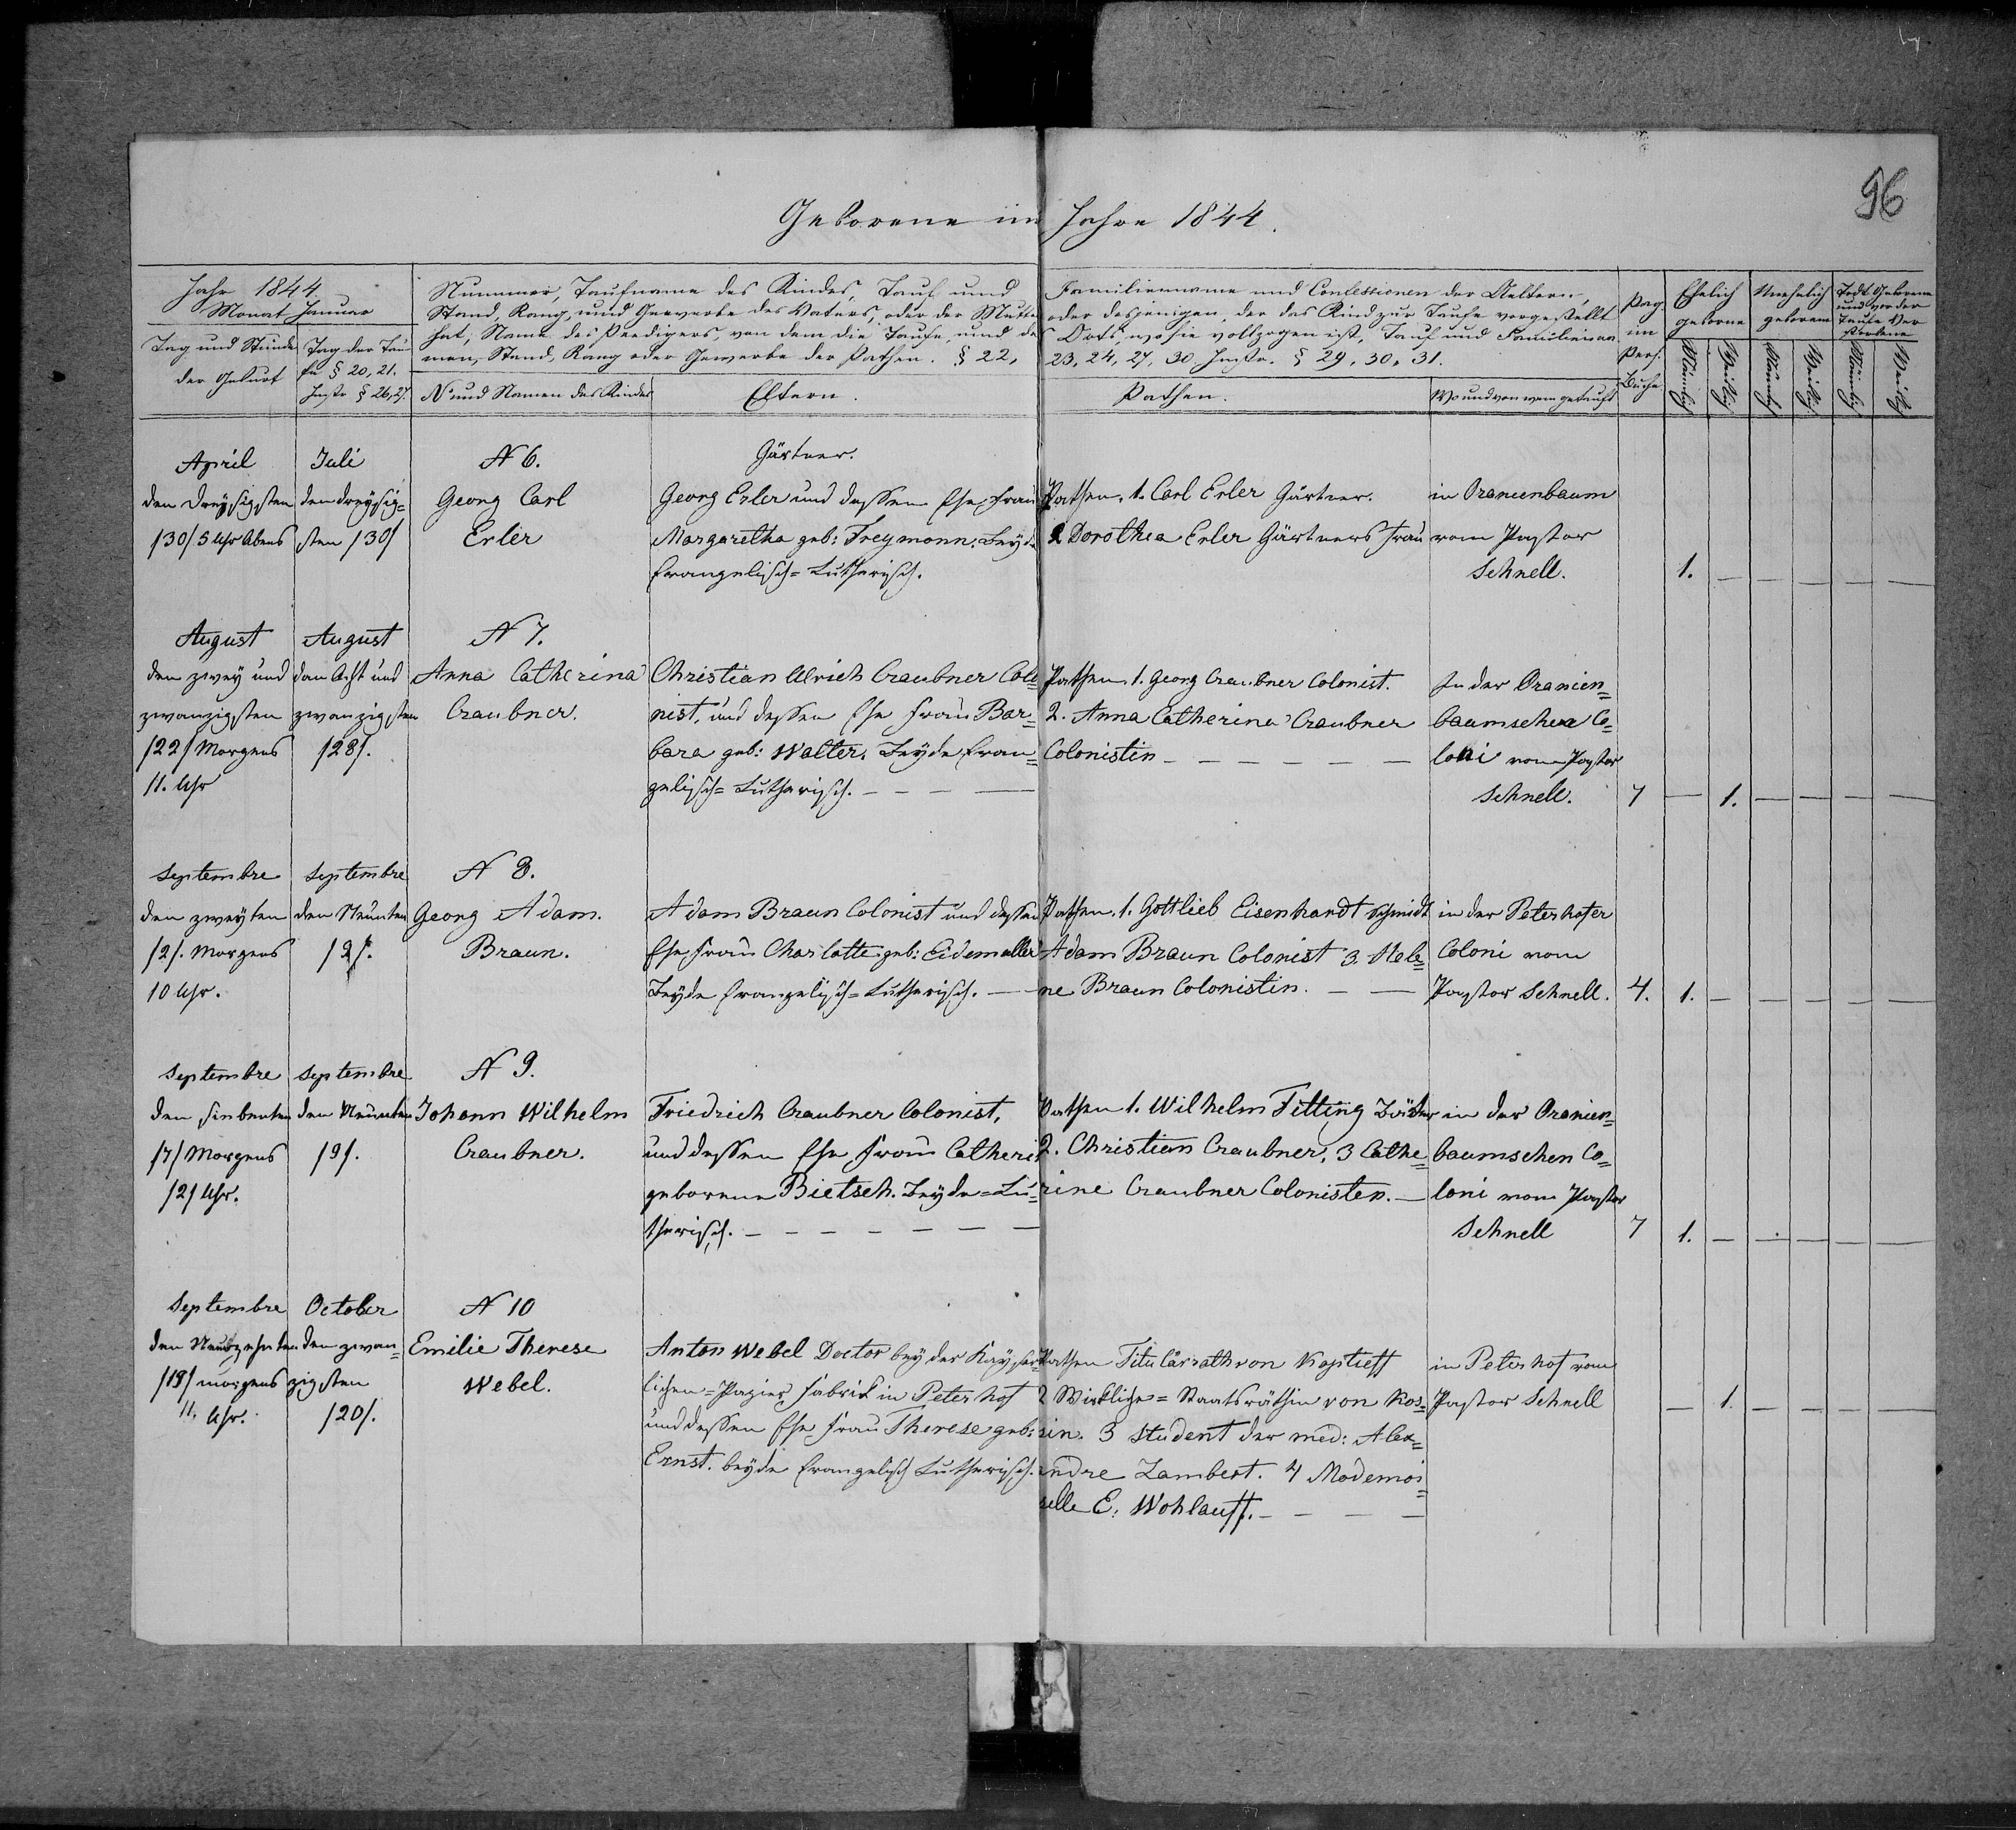 96
Geborene im Jahre 1844.
Jahr 1844
Monat Januar
Tag und Stunde
der Geburt
Tag der Tau
fe § 20, 21.
Instr § 26, 27.
Nummer, Taufname des Kindes, Tauf und
Stand, Rang, und Gewerbe des Vaters, oder der Mutter
hat, Name des Predigers, von dem die Taufe, und de
men, Stand, Rang oder Gewerbe der Pathen. § 22,
N und Namen des Kindes
Eltern.
Familienname und Confessionen der Aeltern,
oder desjenigen, der das Kind zur Taufe vorgestellt
s Orts, wo sie vollzogen ist, Tauf und Familienna
23, 24, 27, 30, Instr. § 29, 30, 31.
Pathen.
Wo und von wem getauft
Pag.
im
Pers:
Buche
Ehelich
geborne
Unehelich
geboren
Todt Geborene
und vor der
Taufe Ver
storbene
Männlich
Weiblich
Männlich
Weiblich
Männlich
Weiblich
April
den dreysigsten
/30/ 5 Uhr Abens
Juli
den dreysig=
sten /30/
N 6.
Georg Carl
Erler
Gärtner.
Georg Erler und dessen Ehe Frau
Margaretha geb: Freymann. Beyde
Evangelisch=Lutherisch.
Pathen, 1. Carl Erler Gärtner.
2 Dorothea Erler Gärtners Frau
in Oranienbaum
vom Pastor
Schnell.
1. — — — — —
August
den zwey und
zwanzigsten
/22/ Morgens
11. Uhr
August
den Acht und
zwanzigsten
/28/.
N 7.
Anna Catherina
Craubner.
Christian Ulrich Craubner Colo=
nist, und dessen Ehe Frau Bar=
bara geb: Walter. Beyde Evan=
gelisch=Lutherisch. — — —
Pathen 1. Georg Craubner Colonist.
2. Anna Catherina Craubner
Colonistin — — — — — —
In der Oranien=
baumschen Co=
loni vom Pastor
Schnell.
7 — 1. — — — —
Septembre
den zweyten
/2/. Morgens
10 Uhr.
Septembre
den Neunten
/9/.
N 8.
Georg Adam.
Braun.
Adam Braun Colonist und dessen
Ehe Frau Charlotte geb: Eidemuller
Beyde Evangelisch=Lutherisch. —
Pathen. 1. Gottlieb Eisenhardt Schmidt
Adam Braun Colonist 3. Hele=
ne Braun Colonistin. — —
in der Peterhofer
Coloni vom
Pastor Schnell.
4. 1. — — — — —
Septembre
den siebenten
/7/ Morgens
/2/ Uhr.
Septembre
den Neunten
/9/.
N 9.
Johann Wilhelm
Craubner.
Friedrich Craubner Colonist,
und dessen Ehe Frau Catheri
geborene Bietsch. Beyde=Lu=
therisch. — — — — — — —
Pathen 1. Wilhelm Fetting
2. Christian Craubner, 3 Cathe=
rine Craubner Colonisten. —
in der Oranien=
baumschen Co=
loni vom Pastor
Schnell
7 1. — — — — —
Septembre
den Neunzehnten
/19/ morgens
11. Uhr.
October
den zwan=
zigsten
/20/.
N 10
Emilie Therese
Webel.
Anton Webel Doctor bey der Kayser
lichen=Papier fabrik in Peterhof
und dessen Ehe Frau Therese geb:
Ernst. beyde Evangelisch Lutherisch.
Pathen Titulärrath von Koptieff
2 Wirkliche=Staatsräthin von Kos=
sin. 3 Student der med: Alex=
andre Lambert. 4 Mademoi=
selle E. Wohlauff. — — — —
in Peterhof vom
Pastor Schnell
— 1. — — — —